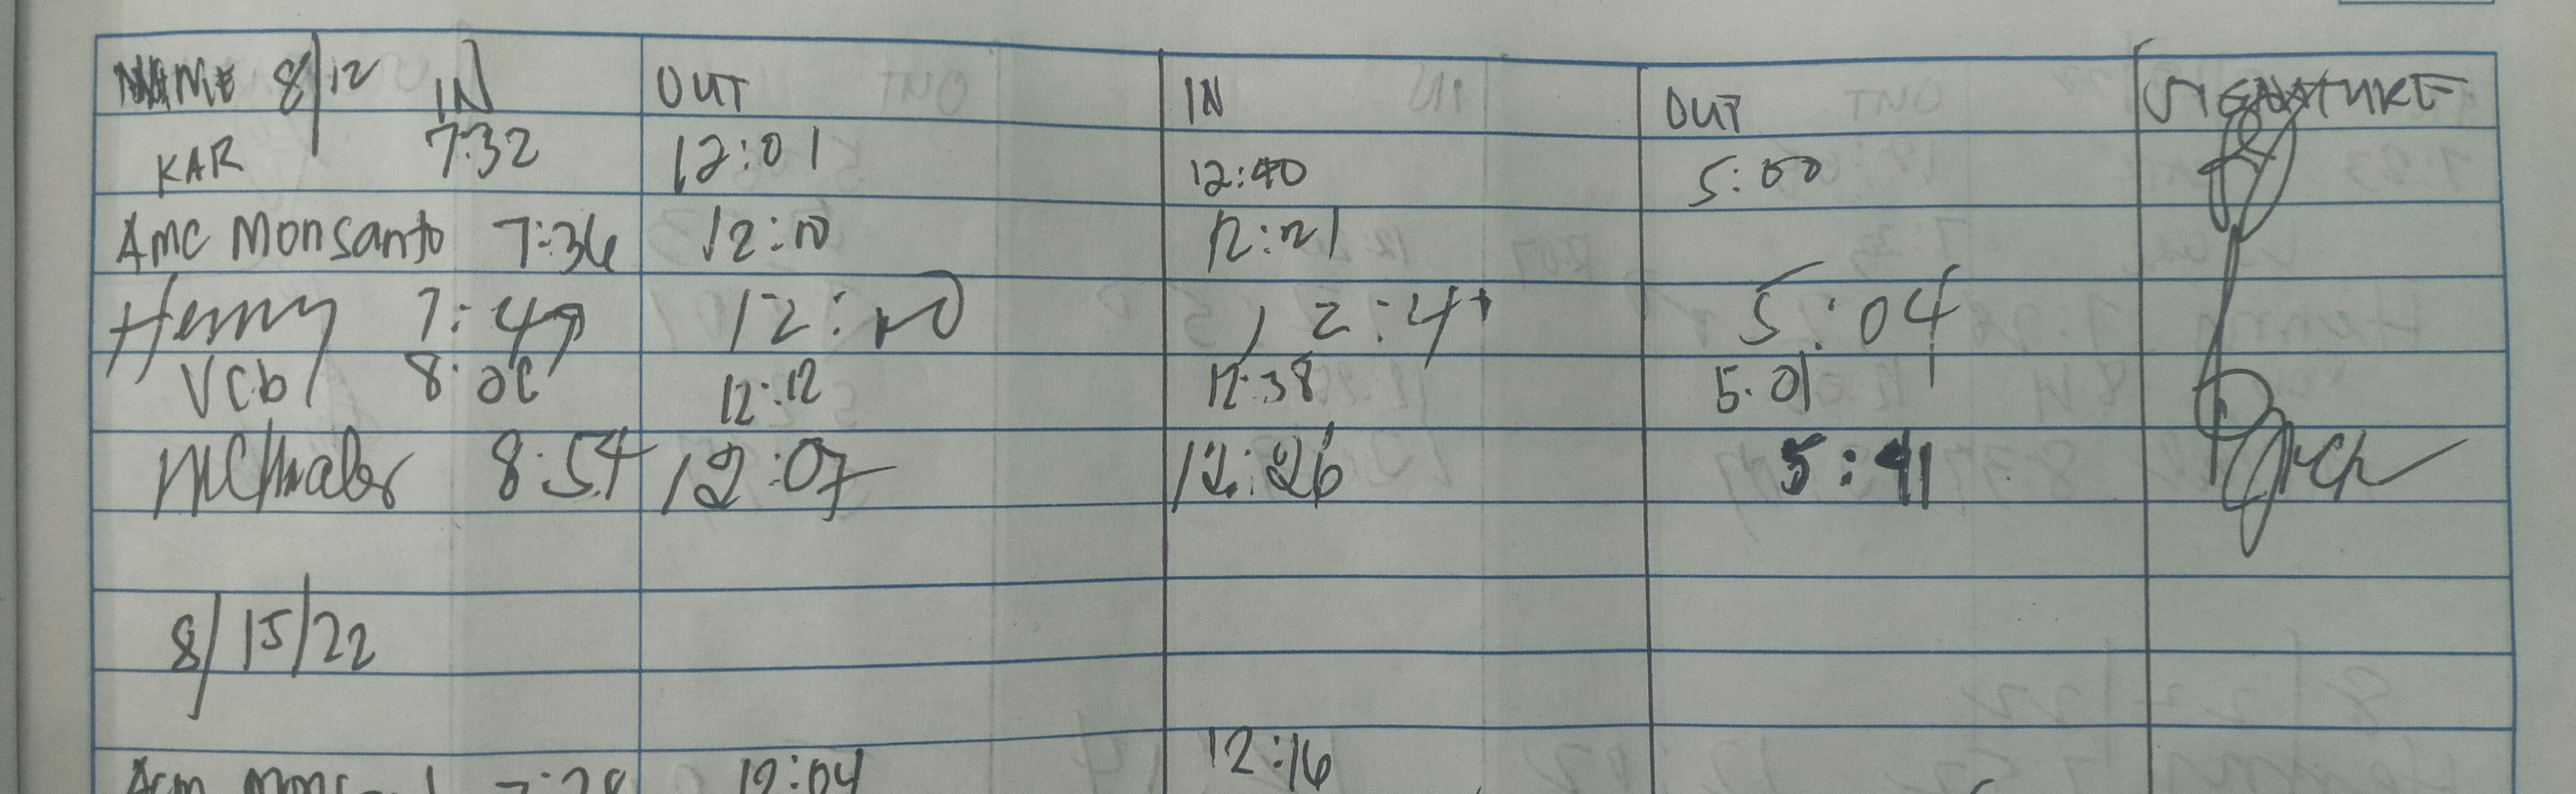 NAME 8/12 IN OUT IN OUT SIGNATURE
KAR 7:32 12:01 12:40 5:00
Amc Monsanto 7:36 12:10 12:21
Henny 7:49 12:10 12:41 5:04
VCb 8:06 12:12 12:38 5:01
8:54 12:07 12:26 5:41
8/15/22
12:04 12:16